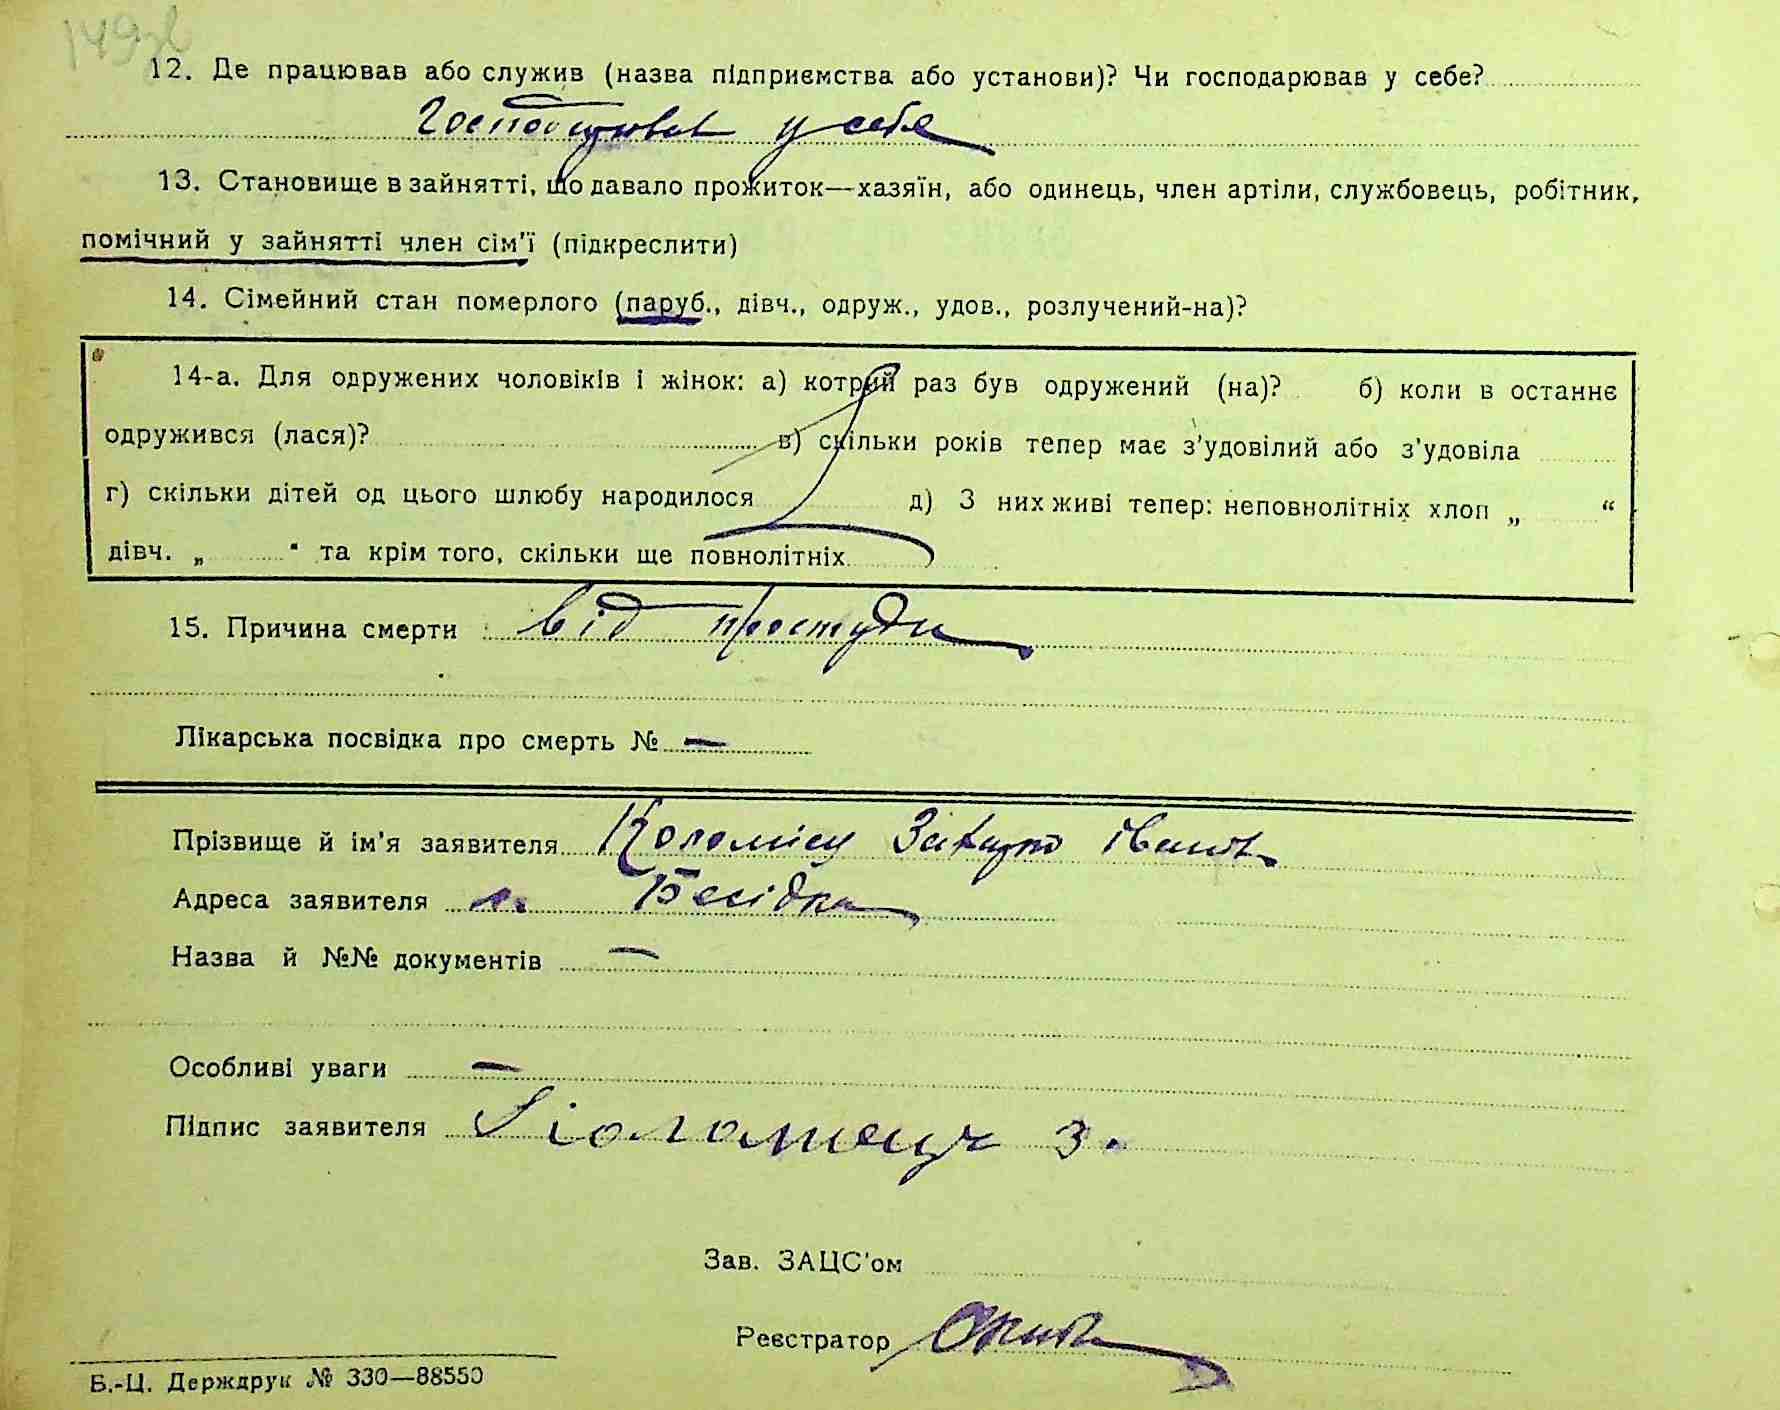 149зв
12. Де працював або служив (назва підприємства або установи)? Чи господарював у себе?
Господарював у себе
13. Становище в зайнятті, що давало прожиток—хазяїн, або одинець, член артіли, службовець, робітник,
помічний у зайнятті член сім'ї (підкреслити)
14. Сімейний стан померлого (паруб., дівч., одруж., удов., розлучений-на)?
14-а. Для одружених чоловіків і жінок: а) котрий раз був одружений (на)? б) коли в останнє
одружився (лася)? в) скільки років тепер має з'удовілий або з'удовіла
г) скільки дітей од цього шлюбу народилося д) З них живі тепер: неповнолітніх хлоп „ “
дівч. „ “ та крім того, скільки ще повнолітніх
15. Причина смерти від простуди
Лікарська посвідка про смерть № —
Прізвище й ім'я заявителя Коломієц Іванов
Адреса заявителя с. Бесідка
Назва й №№ документів —
Особливі уваги —
Підпис заявителя Коломець З.
Зав. ЗАЦС'ом
Реєстратор
Б.-Ц. Держдрук № 330—88550